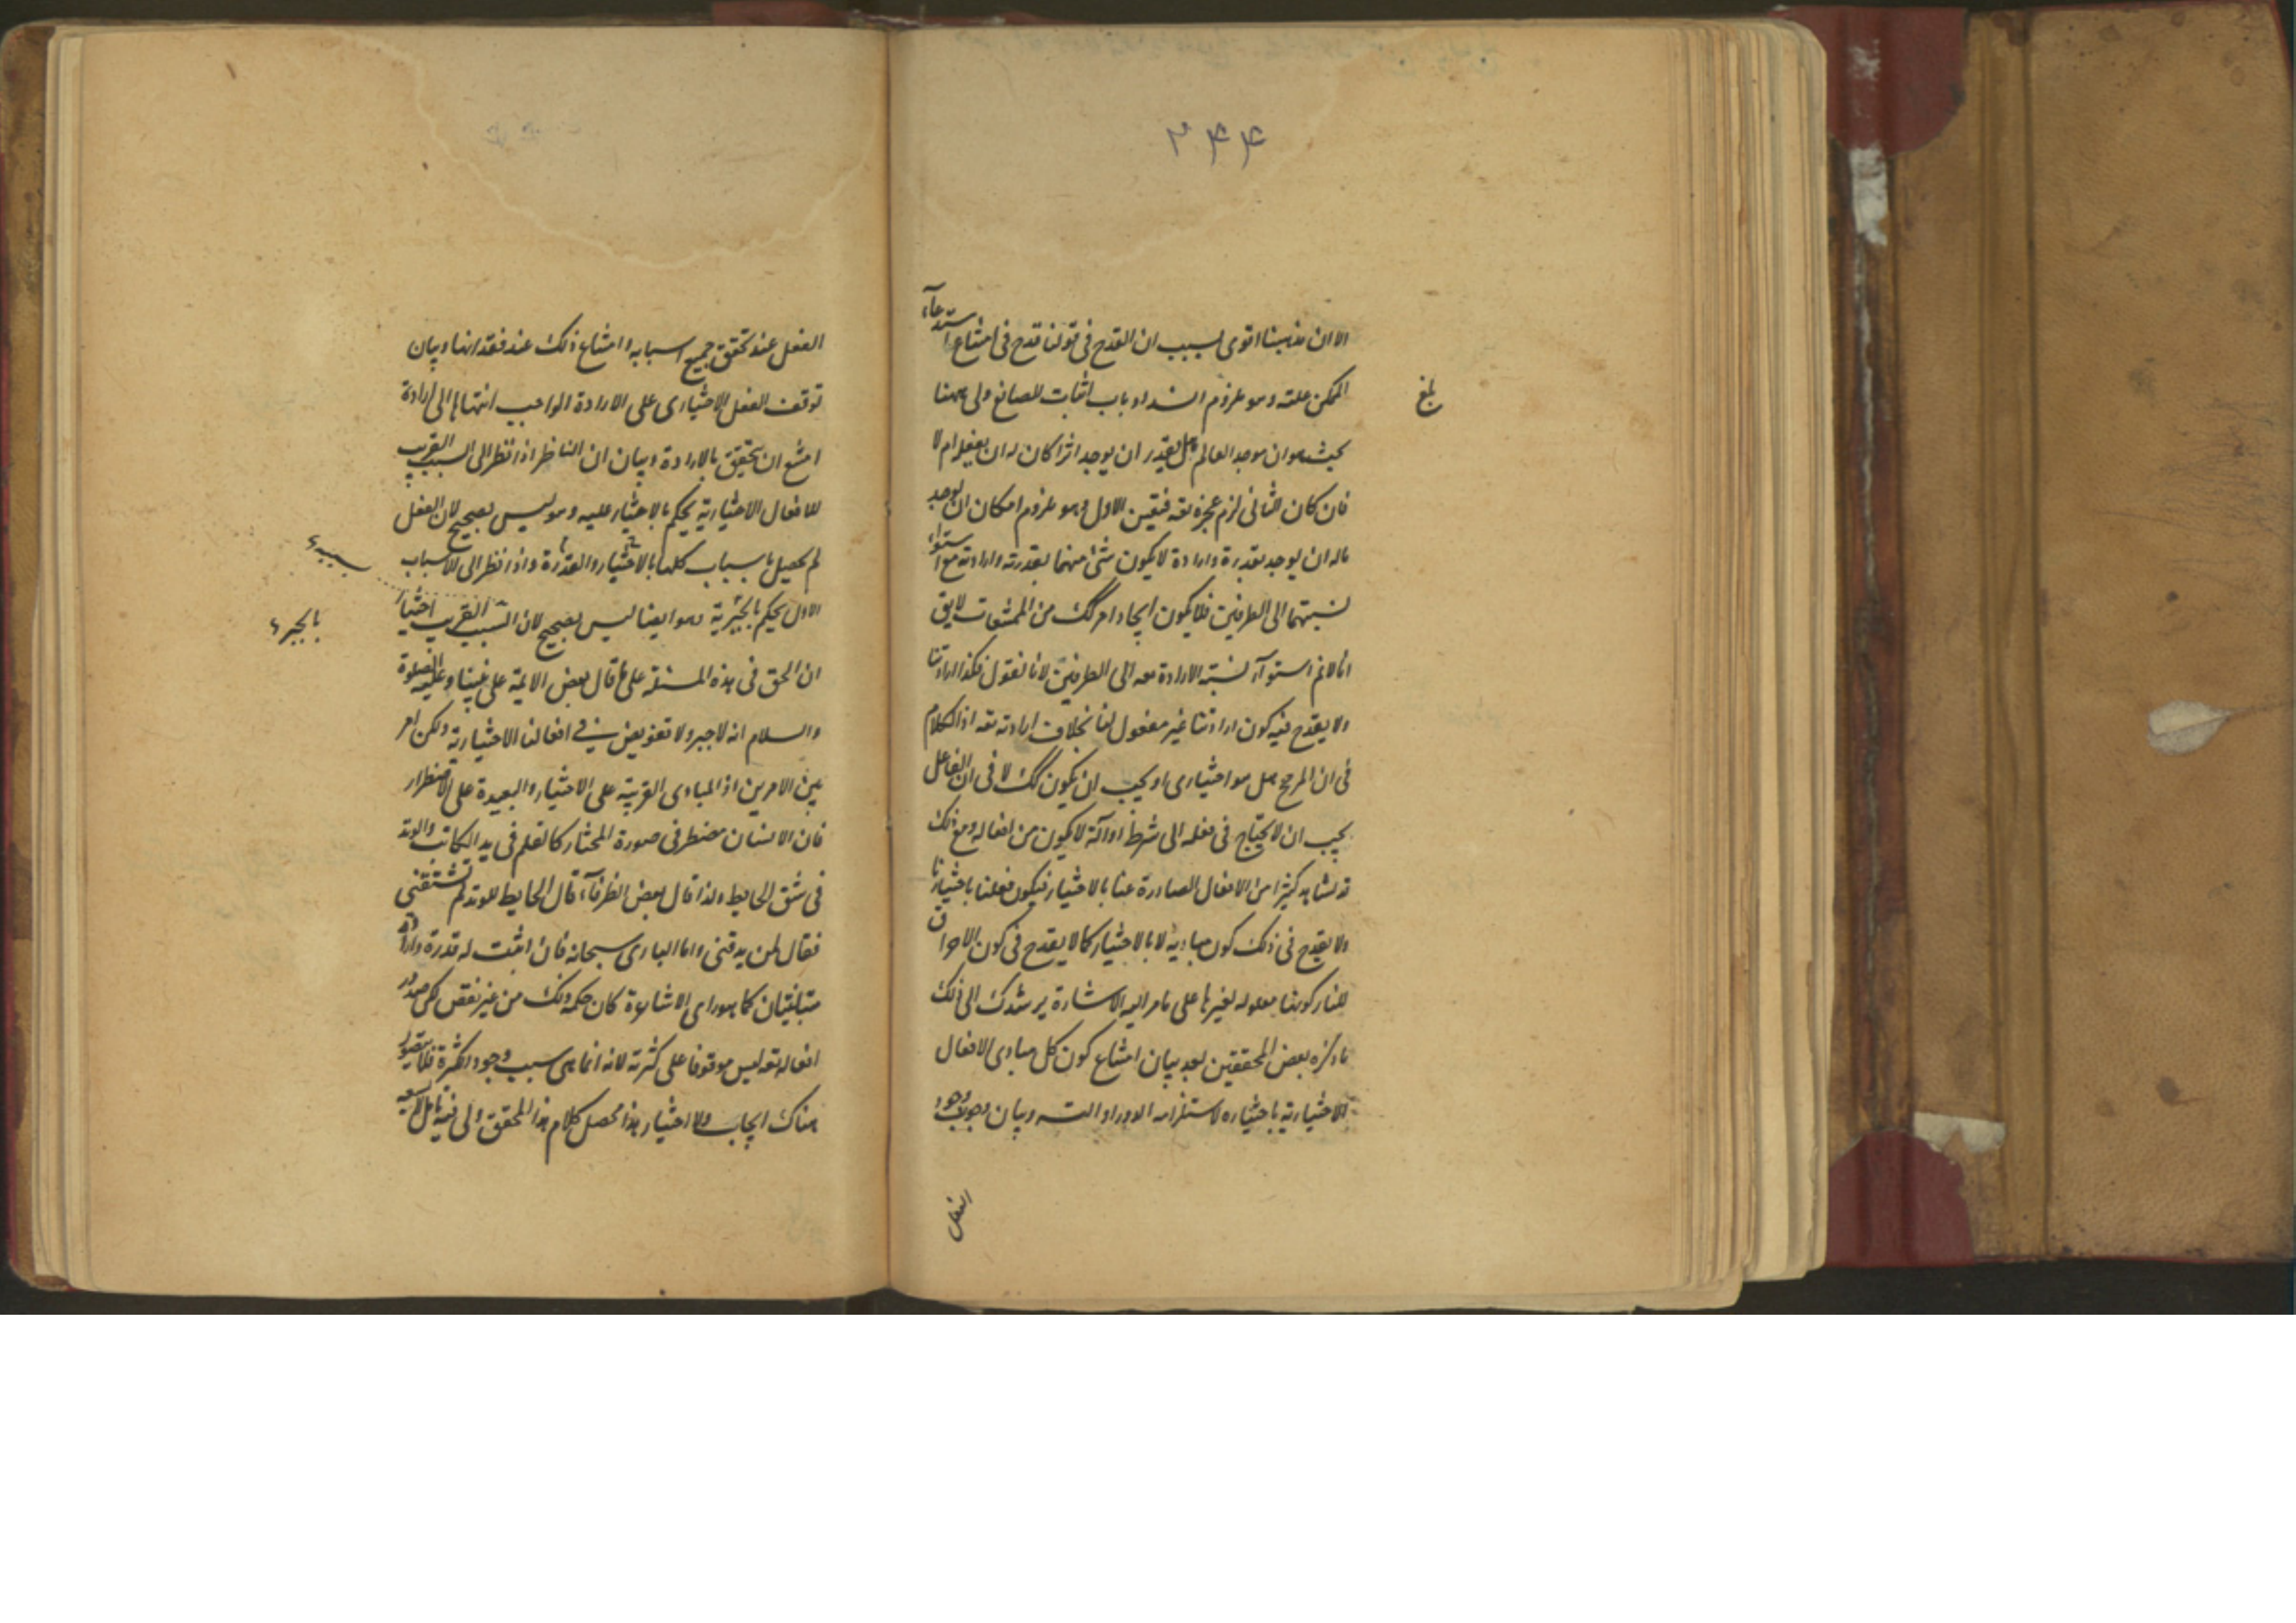 ۲۴۴
الا ان مذهبنا اقوى بسبب ان القدح فى قولنا قدح فى امتناع استدعاء
الممكن علته وهو ملزوم انسداد باب اثبات الصانع ولى ههنا
بلغ
بحث هو ان موجد العالم هل يقدر ان يوجد اثرا كان له ان يفعل ام لا
فان كان الثانى لزم عجزه تعه فتعين الاول وهو ملزوم امكان ان يوجد
ماله ان يوجد بقدرة وارادة لا يكون شئ منهما بقدرته وارادته مع استواء
نسبتهما الى الطرفين فلا يكون ايجاد امر كك من الممتنعات لا يق
انا لانم استوآء نسبة الارادة معه الى الطرفين لانا نقول فكذا ارادتنا
ولا يقدح فيه كون ارادتنا غير مفعول لنا بخلاف ارادته تعه اذ الكلام
فى ان المرجح هل هو اختيارى او يجب ان يكون كك لا فى ان الفاعل
يجب ان لا يحتاج فى فعله الى شرط او آلة لا يكون من افعاله ومع ذلك
قد نشاهد كثيرا من الافعال الصادرة عنا بالاختيار فيكون فعلنا باختيارنا
ولا يقدح فى ذلك كون مباديه لا بالاختيار كما لا يقدح فى كون الاحراق
للنار كونها معلوله لغيرها على ما مر اليه الاشارة يرشدك الى ذلك
ما ذكره بعض المحققين بعد بيان امتناع كون كل مبادى الافعال
الاختيارية باختياره لاستلزامه الدور او التسه وبيان وجوب وجود
الفعل
الفعل عند تحقق جميع اسبابه وامتناع ذلك عند فقدانها وبيان
توقف الفعل الاختيارى على الارادة الواجب انتهاها الى ارادة
امتنع ان يتحقق بالارادة وبيان ان الناظر اذا نظر الى السبب القريب
للافعال الاختيارية يحكم بالاختيار عليه وهو ليس بصحيح لان الفعل
لم يحصل باسباب كلها بالاختيار والقدرة واذا نظر الى الاسباب
الاول يحكم بالجبرية وهو ايضا ليس بصحيح لان السبب القريب اختيار
بالجبر
ان الحق فى هذه المسئلة على ما قال بعض الائمة على نبينا وعليه الصلوة
والسلام انه لا جبر ولا تفويض فى افعالنا الاختيارية ولكن امر
بين الامرين اذ المبادى القريبة على الاختيار والبعيدة على الاضطرار
فان الانسان مضطر فى صورة المختار كالقلم فى يد الكاتب والوتد
فى شق الحايط ولذا قال بعض الظرفاء قال الحايط للوتد لم تشقنى
فقال لمن يدقنى واما البارى سبحانه فان اثبت له قدرة وارادة
متباينتان كما هو راى الاشاعرة كان حكمه ذلك من غير نقص لكن صدور
افعاله تعه ليس موقوفا على كثرته لانه انما هى سبب وجود الكثرة فلا يتصور
هناك ايجاب ولا اختيار هذا محصل كلام هذا المحقق ولى فيه تامل